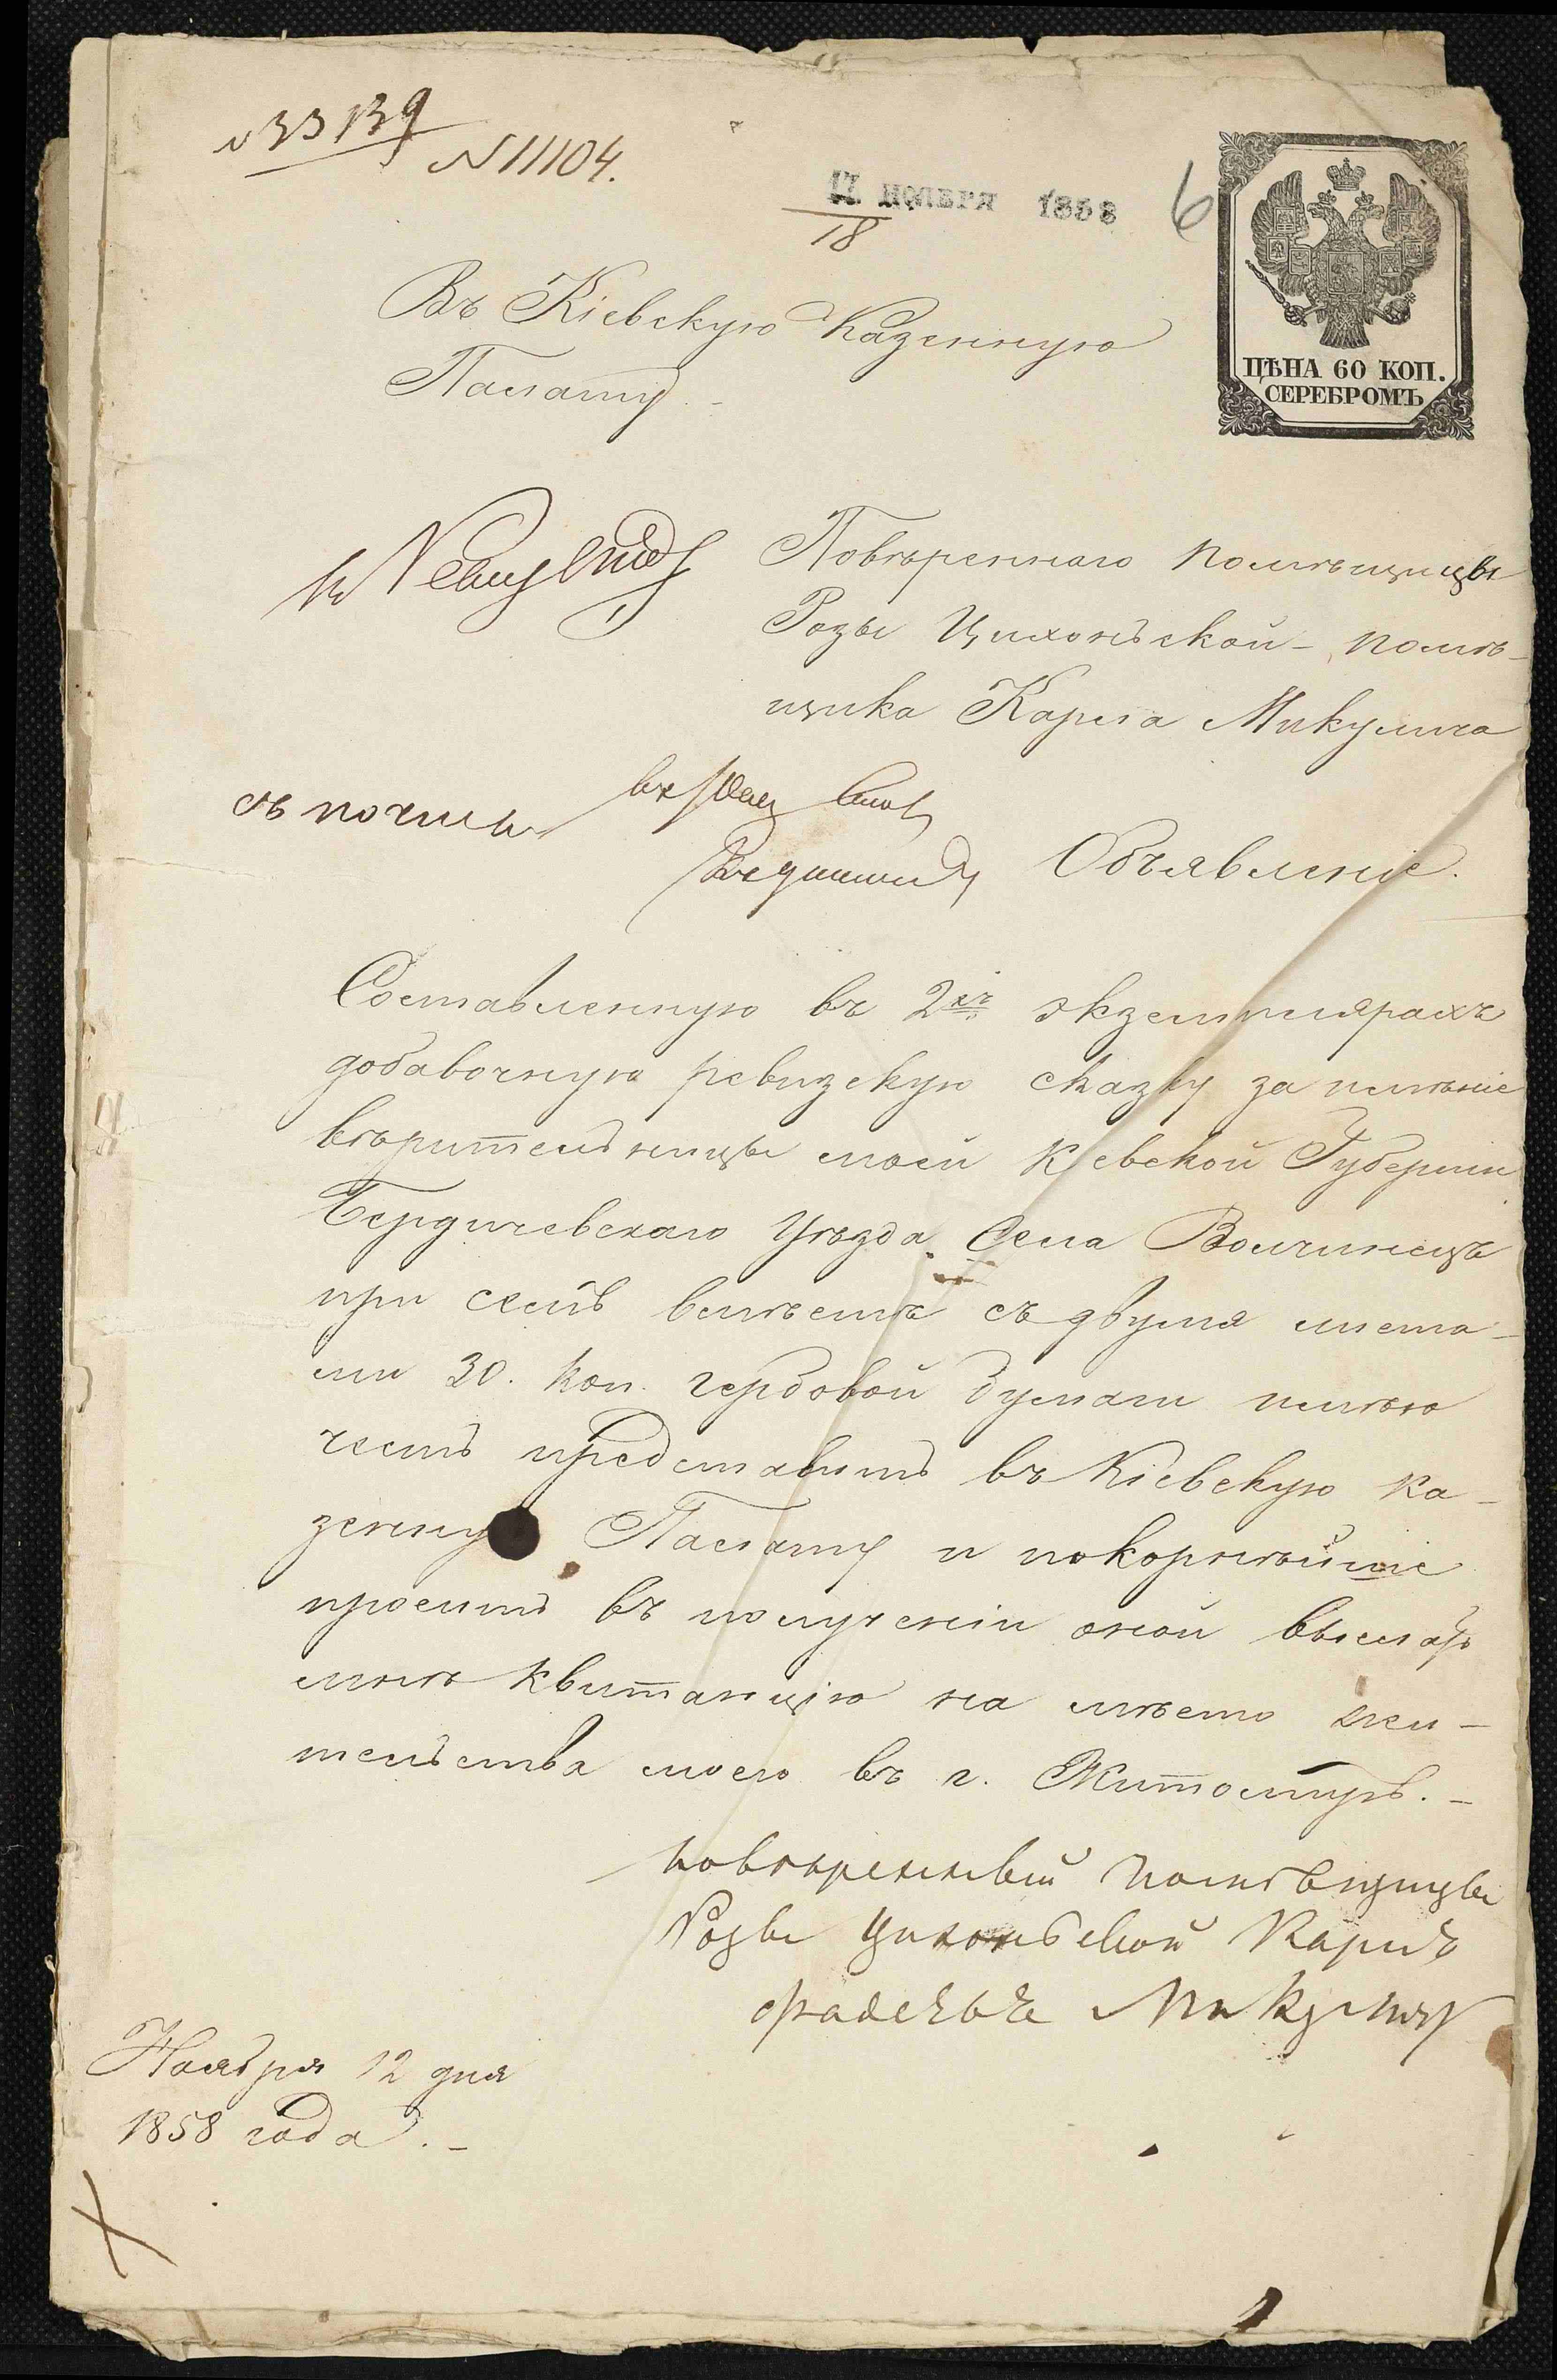 33139
N 11104.
17 НОЯБРЯ 1858
18
6
ЦѢНА 60 КОП.
СЕРЕБРОМЪ
Въ Кіевскую Казенную
Палату.-
Повѣреннаго помѣщицы
Розы Цихоньской - помѣ-
щика Карла Микулича
съ почты
Объявленіе.
Составленную въ 2хъ экземплярахъ
добавочную ревизскую сказку за имѣніе
вѣрительницы моей Кіевской Губерніи
Бердичевскаго Уѣзда Села Волчинецъ
при семъ вмѣстѣ съ двумя листа-
ми 30. коп. гербовой бумаги имѣю
честь представить въ Кіевскую Ка-
зенную Палату и покорнѣйше
просить въ полученіи оной выслать
мнѣ квитанцію на мѣсто жи-
тельства моего въ г. Житомірѣ.-
повѣренный помѣщицы
Розы Цихоньской Карлъ
Микуличъ
Ноября 12 дня
1858 года.-